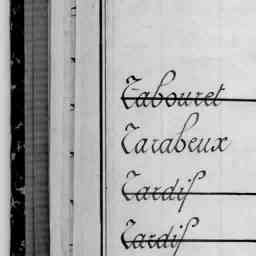 Tabouret
Tarabeux
Tardif
Tardif